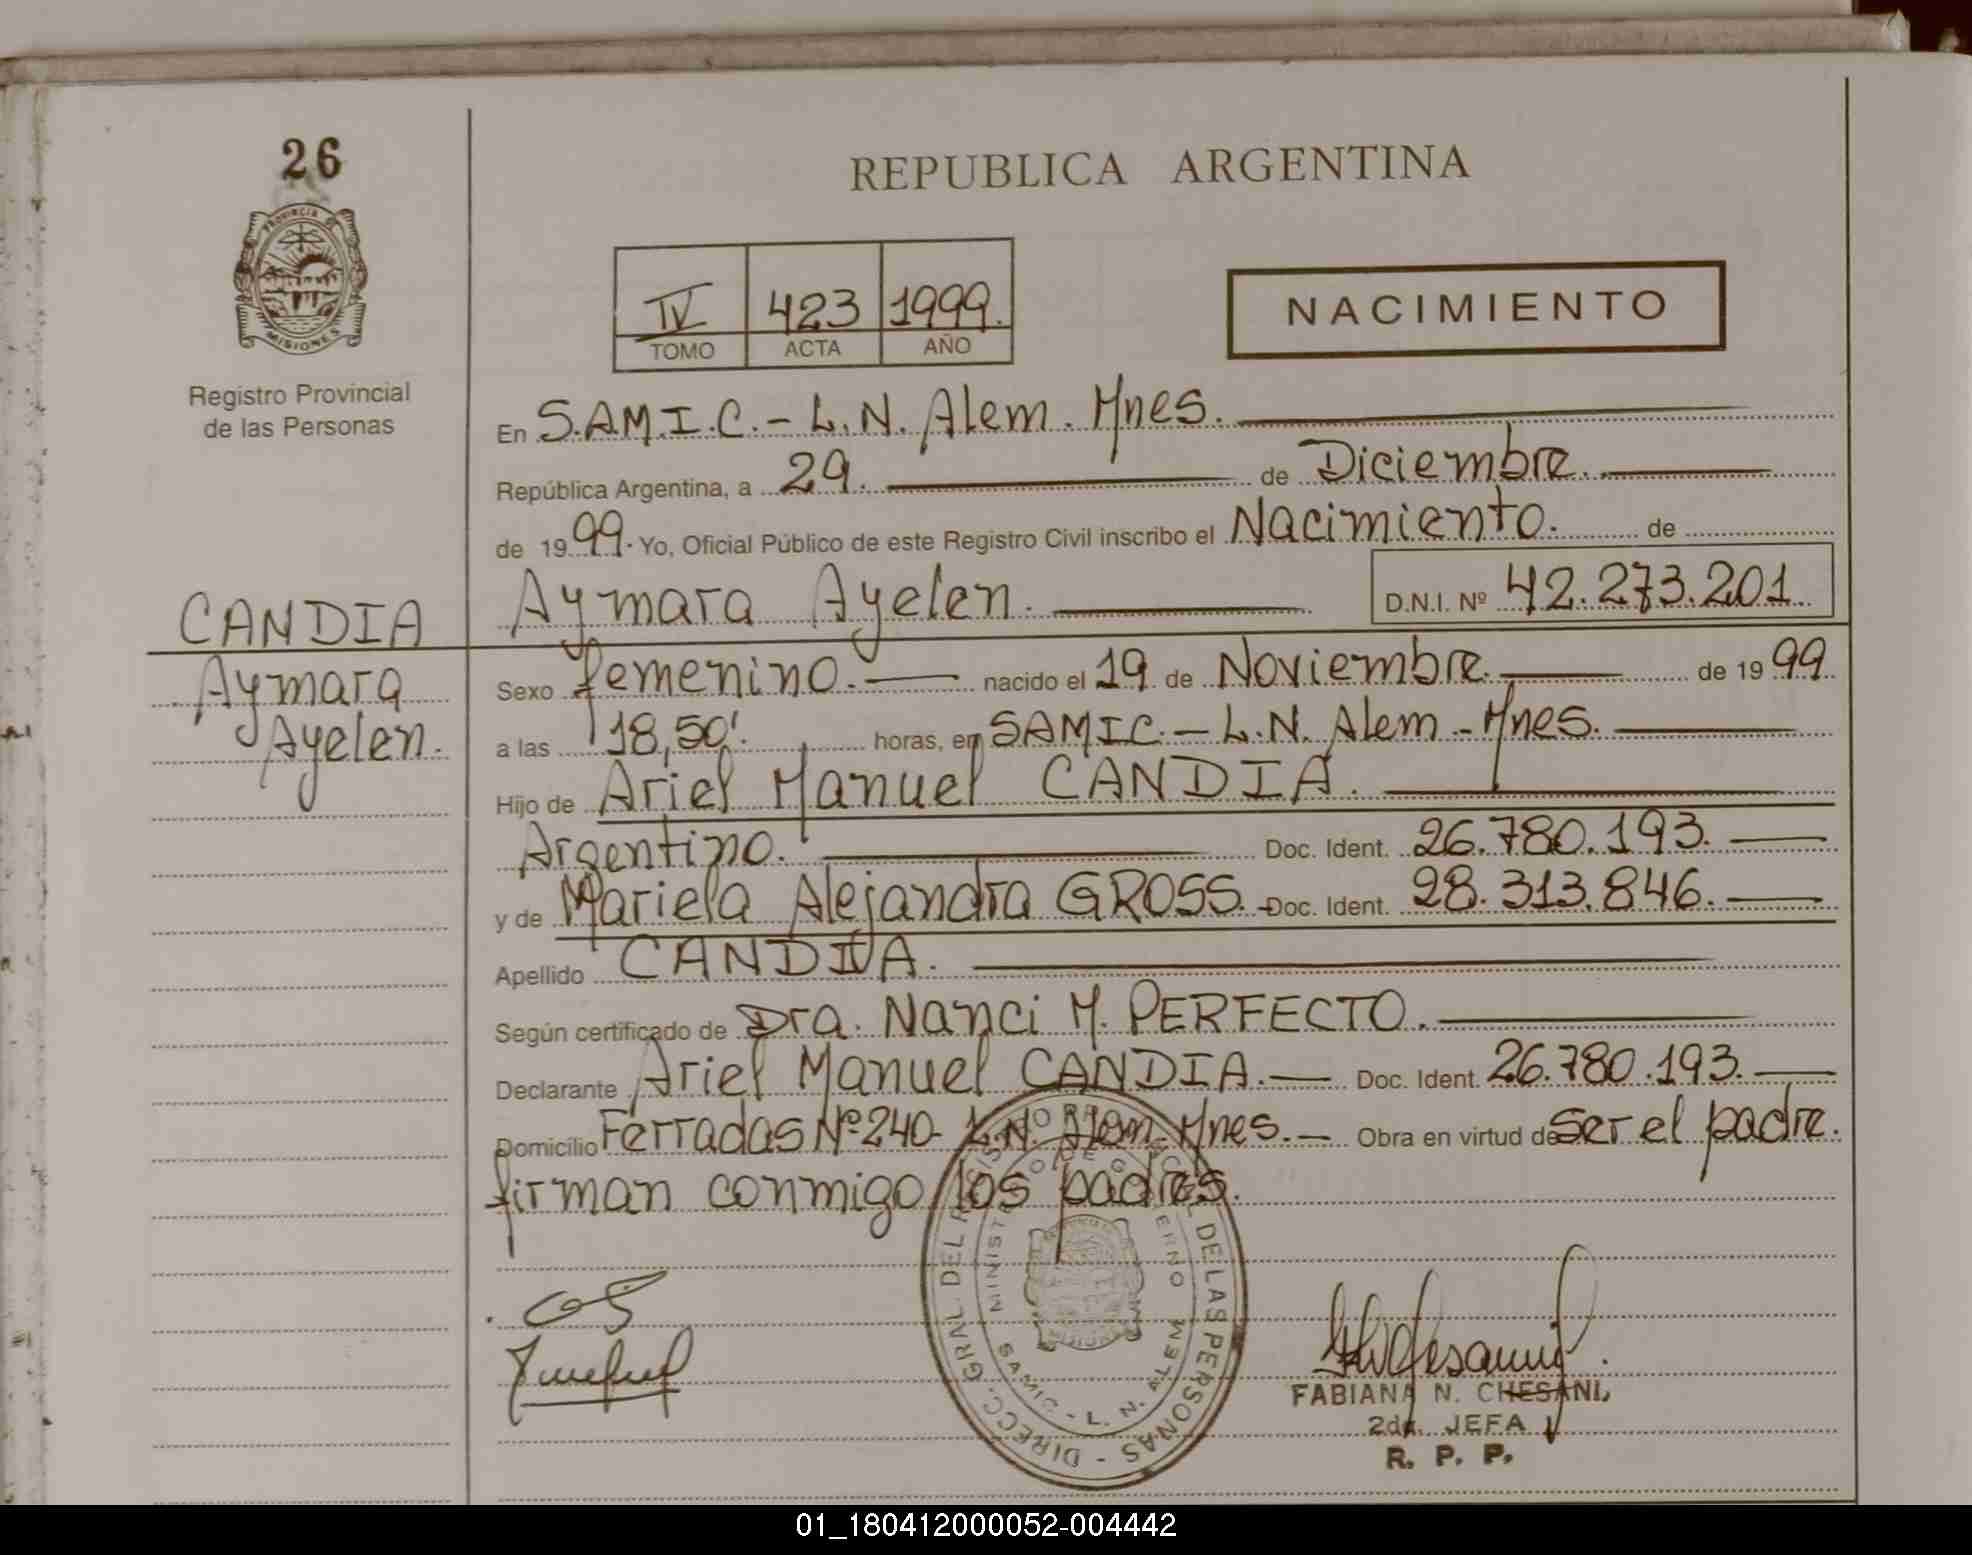 26
REPUBLICA ARGENTINA
PROVINCIA
MISIONES
IV 423 1999.
TOMO ACTA AÑO
NACIMIENTO
Registro Provincial
de las Personas
En S.A.M.I.C. - L.N. Alem. Mnes.
República Argentina, a 29. de Diciembre.
de 1999. Yo, Oficial Público de este Registro Civil inscribo el Nacimiento. de
CANDIA
Aymara
Ayelen.
Aymara Ayelen. D.N.I. Nº 42.273.201
Sexo femenino. nacido el 19 de Noviembre. de 1999.
a las 18,50'. horas, en SAMIC. - L.N. Alem - Mnes.
Hijo de Ariel Manuel CANDIA.
Argentino. Doc. Ident. 26.780.193.
y de Mariela Alejandra GROSS. Doc. Ident. 28.313.846.
Apellido CANDIA.
Según certificado de Dra. Nanci M. PERFECTO.
Declarante Ariel Manuel CANDIA. Doc. Ident. 26.780.193.
Domicilio Ferradas Nº 240 - L.N. Alem - Mnes. Obra en virtud de ser el padre.
firman conmigo los padres.
DELAS PERSONAS - DIRECC. GRAL. DEL
SAMIC - L. N. ALEM
FABIANA N. CHESANI
2da. JEFA
R. P. P.
01_180412000052-004442